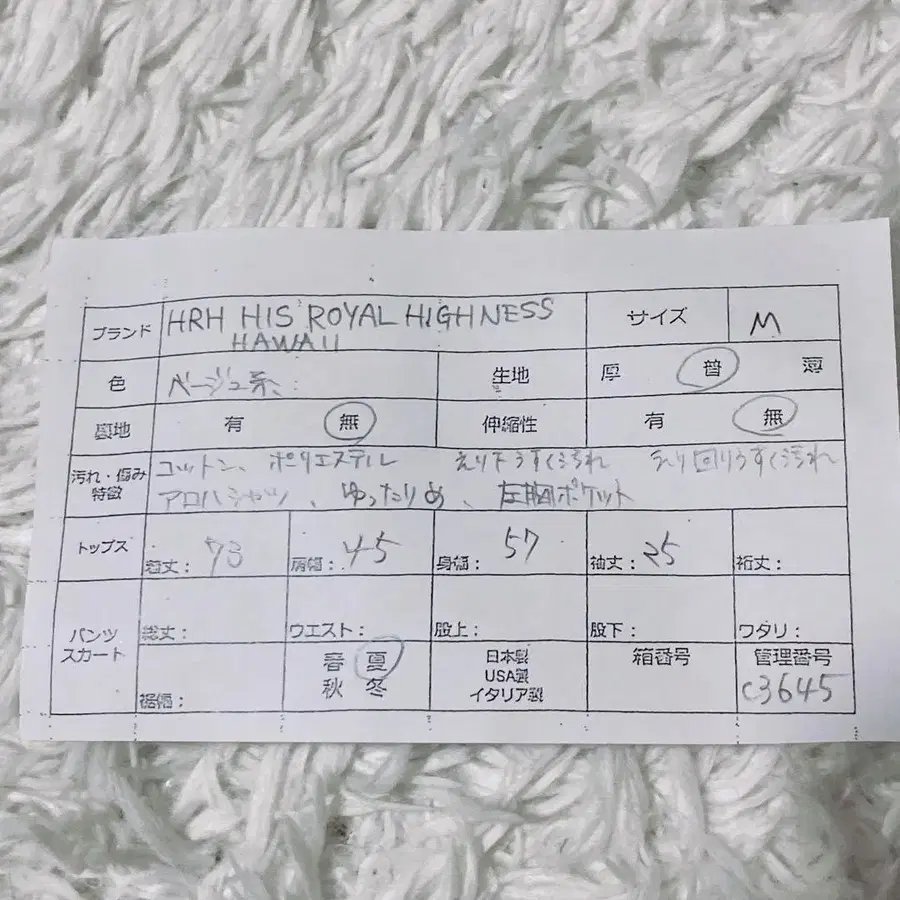 ブランド HRH HIS ROYAL HIGHNESS HAWAII サイズ M
色 ベージュ系、 生地 厚 普 薄
裏地 有 無 伸縮性 有 無
汚れ・傷み 特徴 コットン、ポリエステル えり下うすく汚れ えり回りうすく汚れ
アロハシャツ、ゆったりめ、左胸ポケット
トップス 着丈：73 肩幅：45 身幅：57 袖丈：25 裄丈：
パンツ スカート 総丈： ウエスト： 股上： 股下： ワタリ：
裾幅： 春 夏 秋 冬 日本製 USA製 イタリア製 箱番号 管理番号 C3645